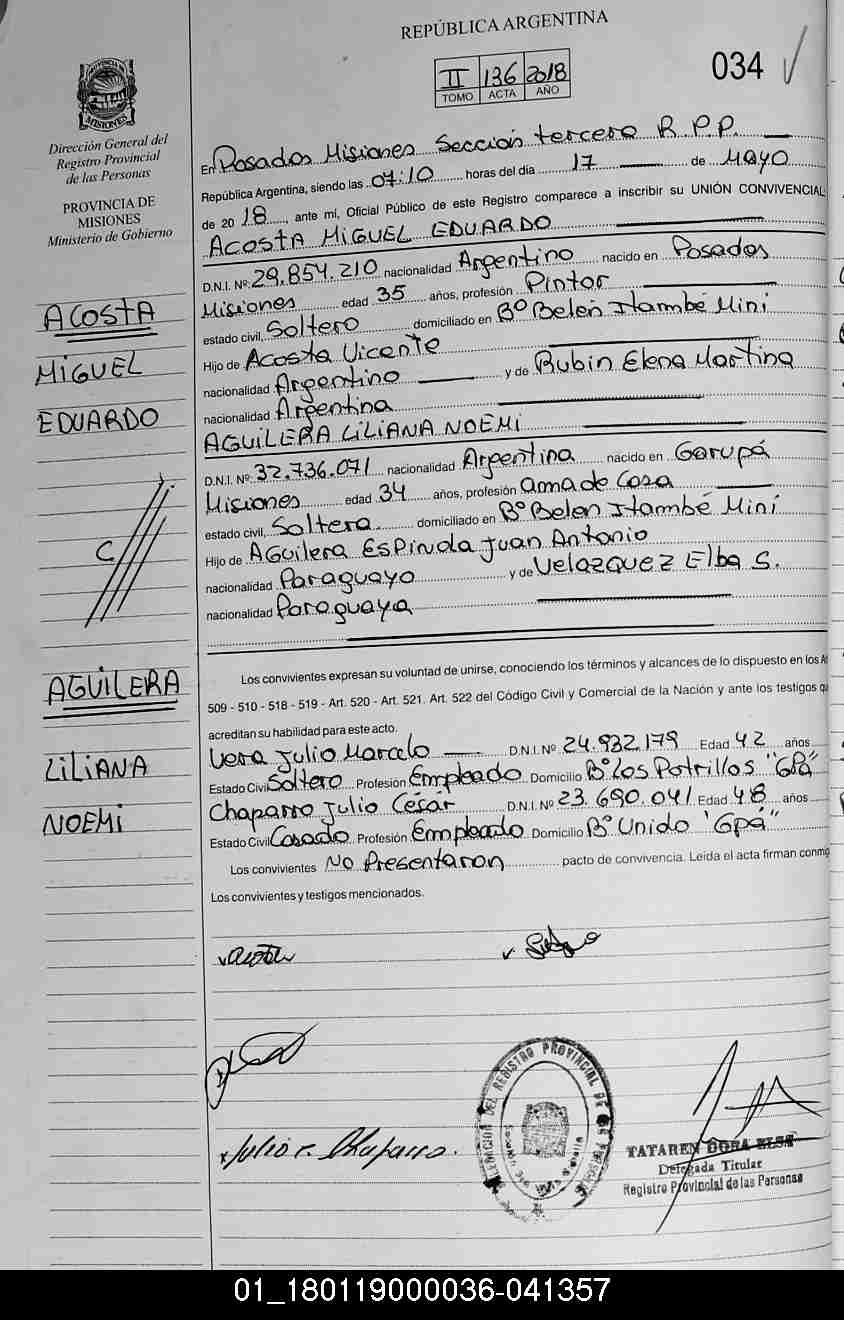 REPÚBLICA ARGENTINA
II 136 2018
TOMO ACTA AÑO
034
PROVINCIA DE
MISIONES
Dirección General del
Registro Provincial
de las Personas
PROVINCIA DE
MISIONES
Ministerio de Gobierno
ACOSTA
MIGUEL
EDUARDO
C
AGUILERA
LILIANA
NOEMI
En Posadas Misiones Sección tercera R.P.P.
República Argentina, siendo las 07:10 horas del día 17 de MAYO
de 20 18, ante mí, Oficial Público de este Registro comparece a inscribir su UNIÓN CONVIVENCIAL
ACOSTA MIGUEL EDUARDO
D.N.I. Nº: 29.854.210 nacionalidad Argentino nacido en Posadas
Misiones edad 35 años, profesión Pintor
estado civil, Soltero domiciliado en Bº Belén Itambé Miní
Hijo de Acosta Vicente
nacionalidad Argentino y de Rubin Elena Martina
nacionalidad Argentina
AGUILERA LILIANA NOEMI
D.N.I. Nº 32.736.071 nacionalidad Argentina nacido en Garupá
Misiones edad 34 años, profesión ama de Casa
estado civil, Soltera domiciliado en Bº Belen Itambé Miní
Hijo de AGuilera Espinola Juan Antonio
nacionalidad Paraguayo y de Velazquez Elba S.
nacionalidad Paraguaya
Los convivientes expresan su voluntad de unirse, conociendo los términos y alcances de lo dispuesto en los
509 - 510 - 518 - 519 - Art. 520 - Art. 521. Art. 522 del Código Civil y Comercial de la Nación y ante los testigos
acreditan su habilidad para este acto.
Vera Julio Marcelo D.N.I. Nº 24.932.179 Edad 42 años
Estado Civil Soltero Profesión Empleado Domicilio Bº Los Potrillos "Gpá"
Chaparro Julio César D.N.I. Nº 23.690.041 Edad 48 años
Estado Civil Casado Profesión Empleado Domicilio Bº Unido "Gpá"
Los convivientes No Presentaron pacto de convivencia. Leida el acta firman
Los convivientes y testigos mencionados.
Julio Chaparro.
DEL REGISTRO PROVINCIAL DE
TATAREN DORA ELSA
Delegada Titular
Registro Provincial de las Personas
01_180119000036-041357